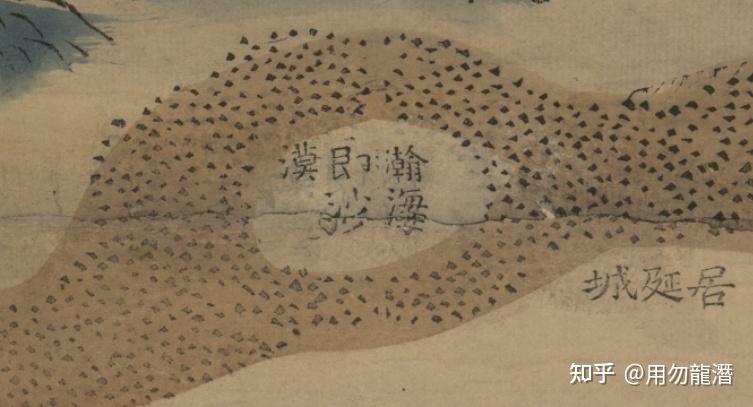 瀚海
即沙
漠
居延城
知乎 @用勿龍潛